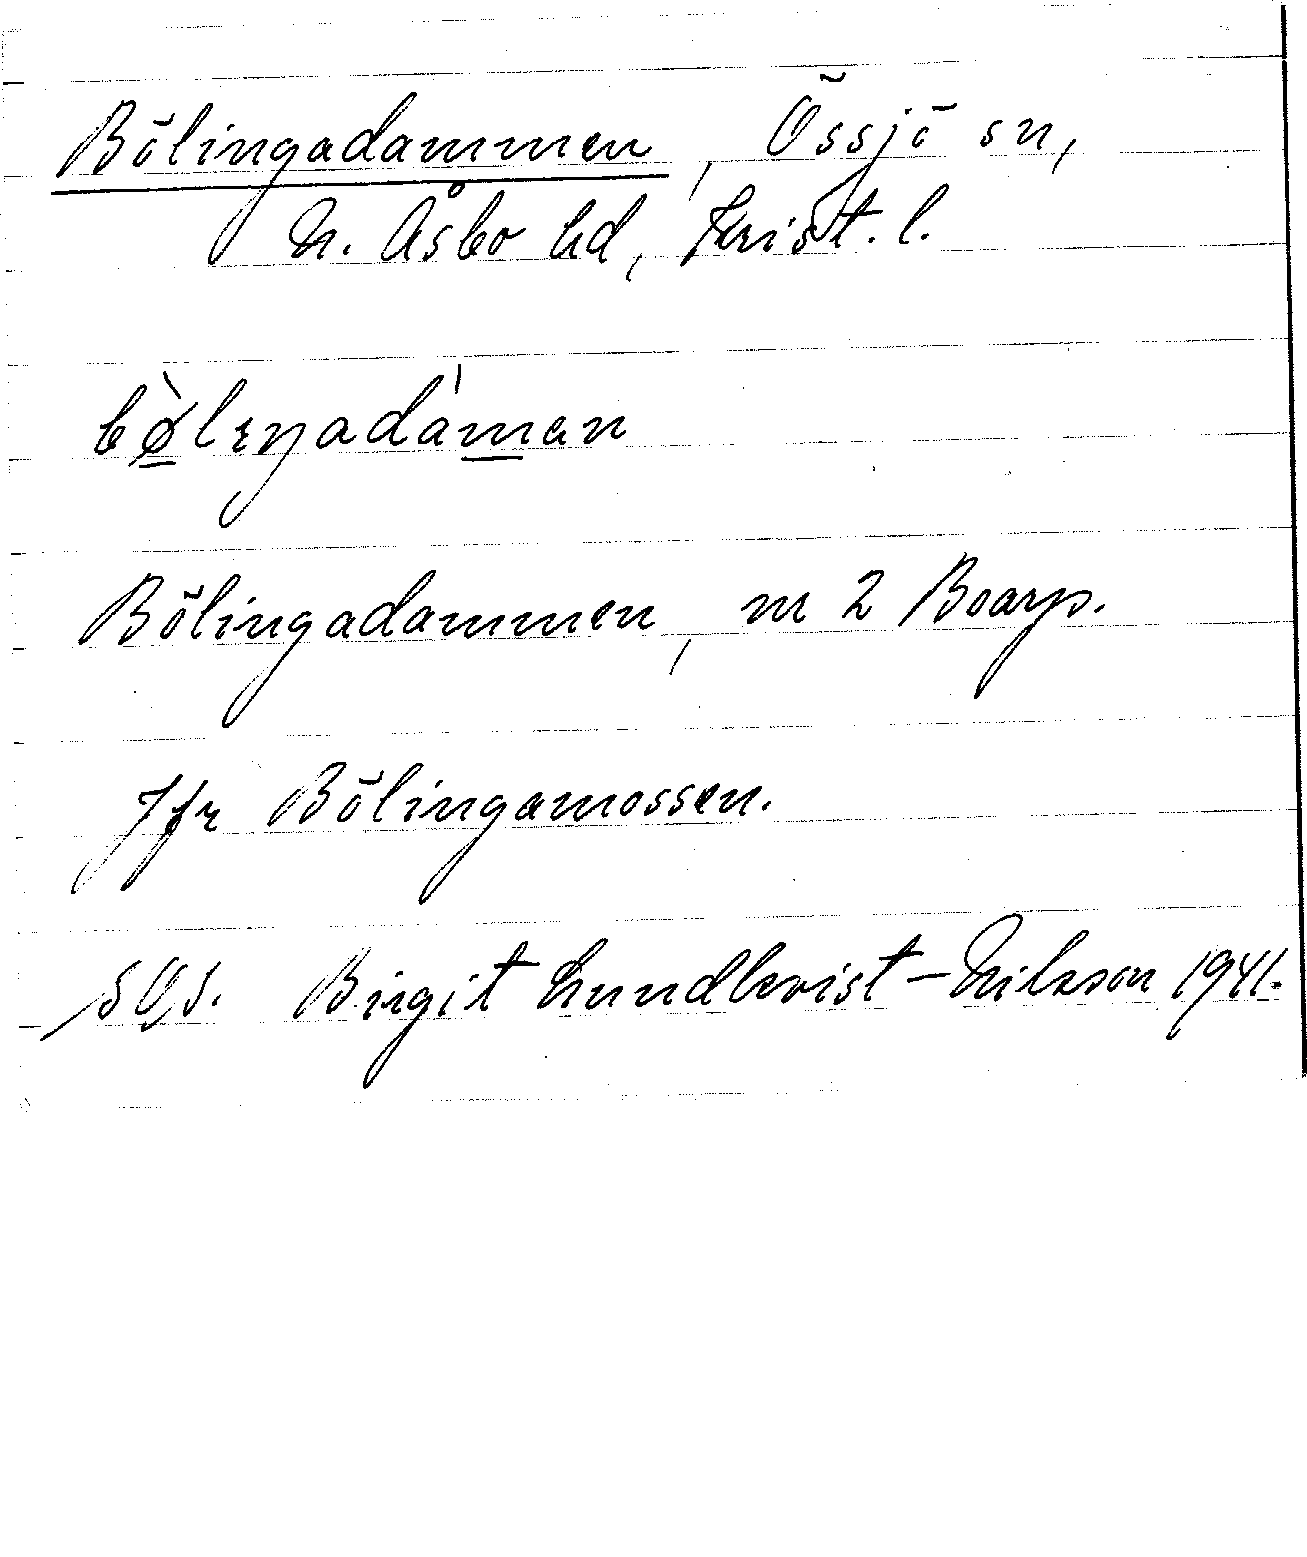 Bölingadammen, Össjö sn,
N. Åsbo hd, Krist. l.
bø̀lıŋadáman
Bölingadammen, nr 2 Boarp.
Jfr Bölingamossen.
SOS. Birgit Lundkvist-Nilsson 1941.